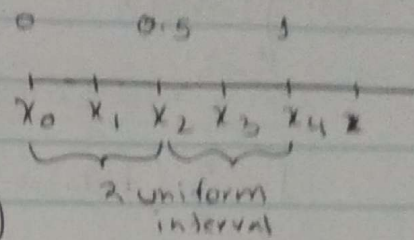 0 0.5 1
x₀ x₁ x₂ x₃ x₄ x
2 uniform
interval